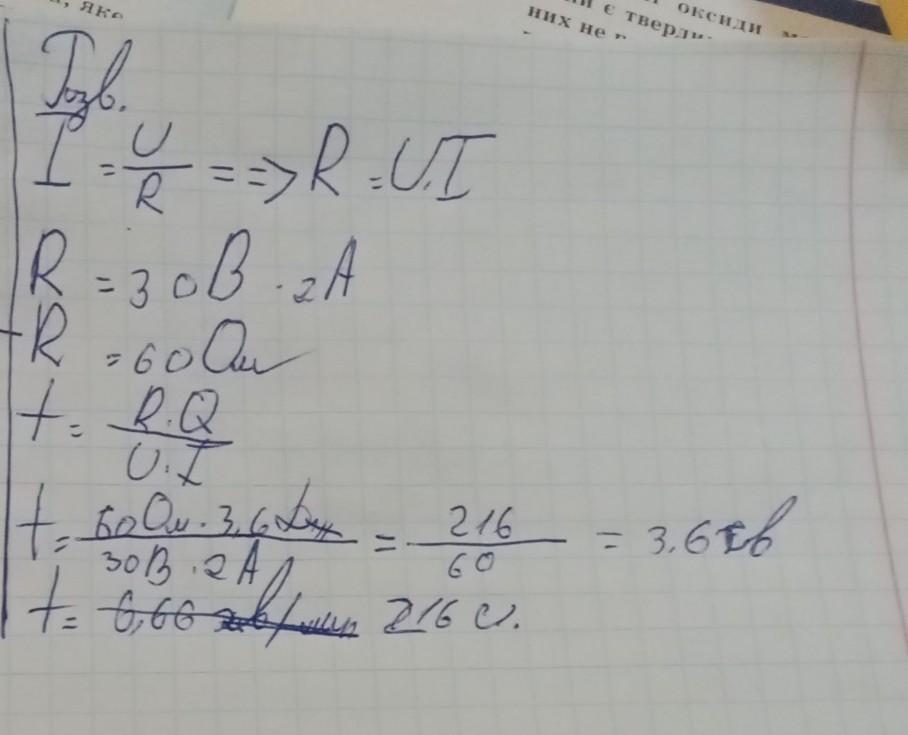 , яке
оксиди
є тверди
них не
Розв.
I = U/R ==> R = U.I
R = 30В · 2А
R = 60Ом
t = R.Q/U.I
t = 60Ом · 3,6Дж/30В · 2А = 216/60 = 3.6хв
t = 0,66 хв/мин 216 с.